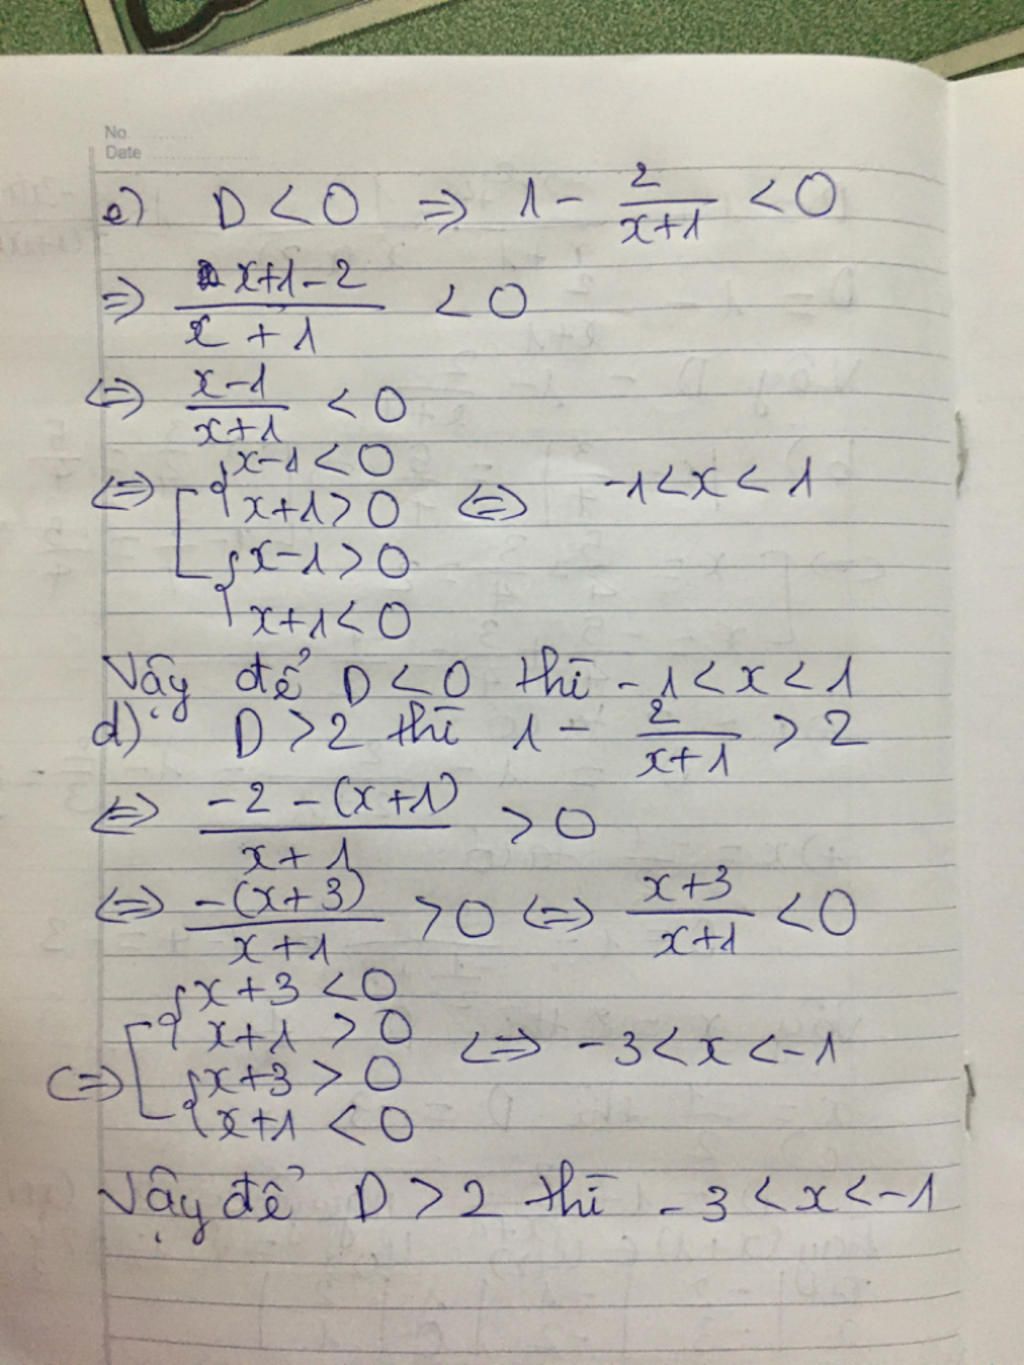 No
Date
e) D < 0 => 1 - 2/(x+1) < 0
=> (x+1-2)/(x+1) < 0
<=> (x-1)/(x+1) < 0
<=> [ { x-1 < 0
x+1 > 0 <=> -1 < x < 1
{ x-1 > 0
x+1 < 0
Vậy để D < 0 thì -1 < x < 1
d) D > 2 thì 1 - 2/(x+1) > 2
<=> (-2-(x+1))/(x+1) > 0
<=> (-(x+3))/(x+1) > 0 <=> (x+3)/(x+1) < 0
<=> [ { x+3 < 0
x+1 > 0 <=> -3 < x < -1
{ x+3 > 0
x+1 < 0
Vậy để D > 2 thì -3 < x < -1